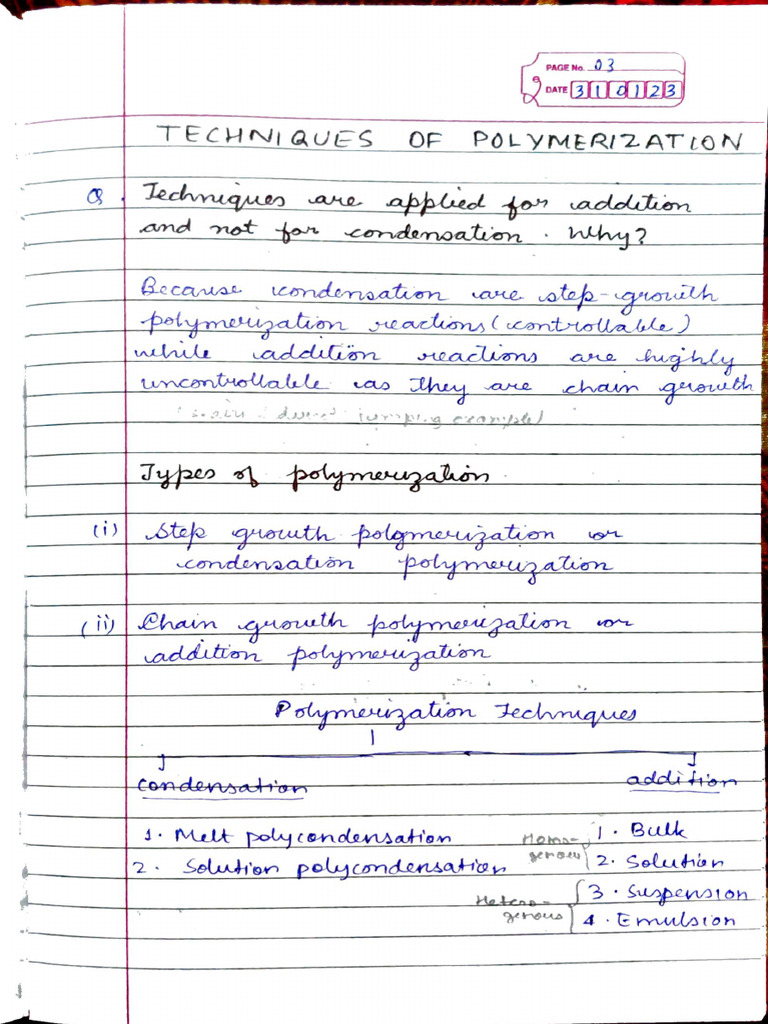 PAGE No. 03
DATE 310123
TECHNIQUES OF POLYMERIZATION
Q. Techniques are applied for addition
and not for condensation. Why?
Because condensation are step-growth
polymerization reactions (controllable)
while addition reactions are highly
uncontrollable as they are chain growth
jumping example)
Types of polymerization
(i) Step growth polymerization or
condensation polymerization
(ii) Chain growth polymerization or
addition polymerization
Polymerization Techniques
condensation addition
1. Melt polycondensation Homo- 1. Bulk
2. Solution polycondensation genous 2. Solution
Hetero- 3. Suspension
genous 4. Emulsion